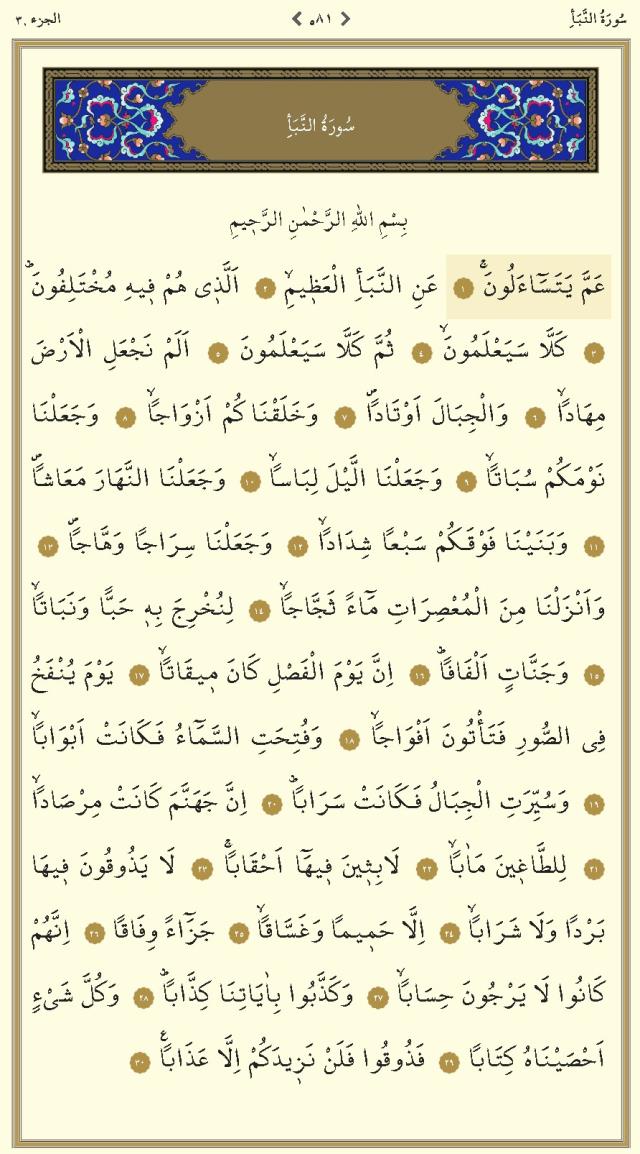 سُورَةُ النَّبَأِ ٥٨١ الجزء ٣٠
سُورَةُ النَّبَأِ
بِسْمِ اللهِ الرَّحْمٰنِ الرَّحٖيمِ
عَمَّ يَتَسَٓاءَلُونَۚ ١ عَنِ النَّبَأِ الْعَظٖيمِۙ ٢ اَلَّذٖى هُمْ فٖيهِ مُخْتَلِفُونَؕ
٣ كَلَّا سَيَعْلَمُونَۙ ٤ ثُمَّ كَلَّا سَيَعْلَمُونَ ٥ اَلَمْ نَجْعَلِ الْاَرْضَ
مِهَادًاۙ ٦ وَالْجِبَالَ اَوْتَادًاۖ ٧ وَخَلَقْنَاكُمْ اَزْوَاجًاۙ ٨ وَجَعَلْنَا
نَوْمَكُمْ سُبَاتًاۙ ٩ وَجَعَلْنَا الَّيْلَ لِبَاسًاۙ ١٠ وَجَعَلْنَا النَّهَارَ مَعَاشًاۖ
١١ وَبَنَيْنَا فَوْقَكُمْ سَبْعًا شِدَادًاۙ ١٢ وَجَعَلْنَا سِرَاجًا وَهَّاجًاۖ ١٣
وَاَنْزَلْنَا مِنَ الْمُعْصِرَاتِ مَٓاءً ثَجَّاجًاۙ ١٤ لِنُخْرِجَ بِهٖ حَبًّا وَنَبَاتًاۙ
١٥ وَجَنَّاتٍ اَلْفَافًاؕ ١٦ اِنَّ يَوْمَ الْفَصْلِ كَانَ مٖيقَاتًاۙ ١٧ يَوْمَ يُنْفَخُ
فِى الصُّورِ فَتَأْتُونَ اَفْوَاجًاۙ ١٨ وَفُتِحَتِ السَّمَٓاءُ فَكَانَتْ اَبْوَابًاۙ
١٩ وَسُيِّرَتِ الْجِبَالُ فَكَانَتْ سَرَابًاؕ ٢٠ اِنَّ جَهَنَّمَ كَانَتْ مِرْصَادًاۙ
٢١ لِلطَّاغٖينَ مَاٰبًاۙ ٢٢ لَابِثٖينَ فٖيهَٓا اَحْقَابًاۚ ٢٣ لَا يَذُوقُونَ فٖيهَا
بَرْدًا وَلَا شَرَابًاۙ ٢٤ اِلَّا حَمٖيمًا وَغَسَّاقًاۙ ٢٥ جَزَٓاءً وِفَاقًا ٢٦ اِنَّهُمْ
كَانُوا لَا يَرْجُونَ حِسَابًاۙ ٢٧ وَكَذَّبُوا بِاٰيَاتِنَا كِذَّابًاؕ ٢٨ وَكُلَّ شَىْءٍ
اَحْصَيْنَاهُ كِتَابًا ٢٩ فَذُوقُوا فَلَنْ نَزٖيدَكُمْ اِلَّا عَذَابًاࣖ ٣٠